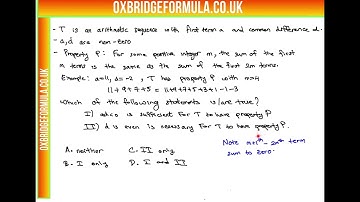 OXBRIDGEFORMULA.CO.UK
OXBRIDGEFORMULA.CO.UK
- T is an arithmetic sequence with first term a and common difference d.
- a,d are non-zero
- Property P: For some positive integer m, the sum of the first
m terms is the same as the sum of the first 2m terms.
Example: a=11, d=-2, T has property P with m=4
11+9+7+5 = 11+9+7+5+3+1-1-3
Which of the following statements is/are true?
I) ad<0 is sufficient for T to have property P
II) d is even is necessary for T to have property P.
A. neither
C. II only
B. I only
D. I and II
Note m+1th - 2mth term
sum to zero.